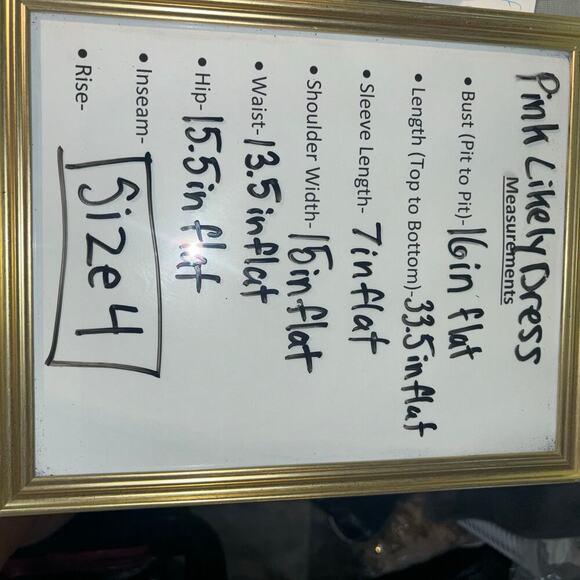 Pink Likely Dress
Measurements
• Bust (Pit to Pit)- 16in flat
• Length (Top to Bottom)- 33.5in flat
• Sleeve Length- 7in flat
• Shoulder Width- 15in flat
• Waist- 13.5in flat
• Hip- 15.5in flat
• Inseam-
• Rise-
Size 4